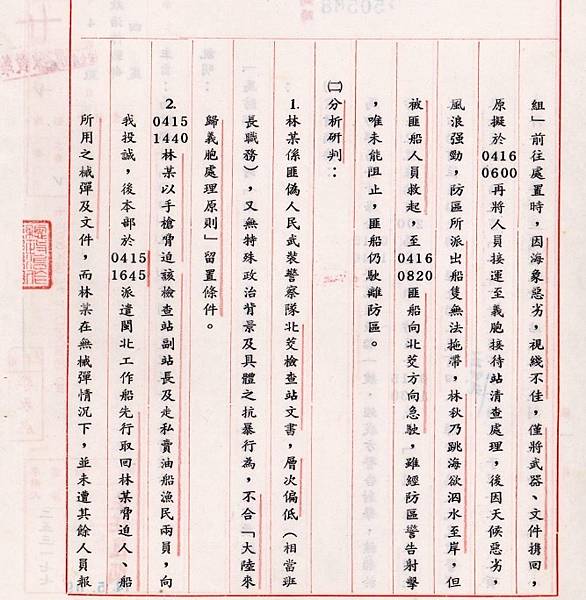 組」前往處置時,因海象惡劣,視綫不佳,僅將武器、文件携回,
原擬於0416 0600再將人員接運至義胞接待站清查處理,後因天候惡劣,
風浪强勁,防區所派出船隻無法拖帶,林秋乃跳海欲泅水至岸,但
被匪船人員救起,至0416 0820匪船向北茭方向急駛,雖經防區警告射擊
,唯未能阻止,匪船仍駛離防區。
㈡分析研判:
1.林某係匪偽人民武裝警察隊北茭檢查站文書,層次偏低(相當班
長職務),又無特殊政治背景及具體之抗暴行為,不合「大陸來
歸義胞處理原則」留置條件。
2.0415 1440林某以手槍脅迫該檢查站副站長及走私賣油船漁民兩員,向
我投誠,後本部於0415 1645派遣閩北工作船先行取回林某脅迫人、船
所用之械彈及文件,而林某在無械彈情況下,並未遭其餘人員報